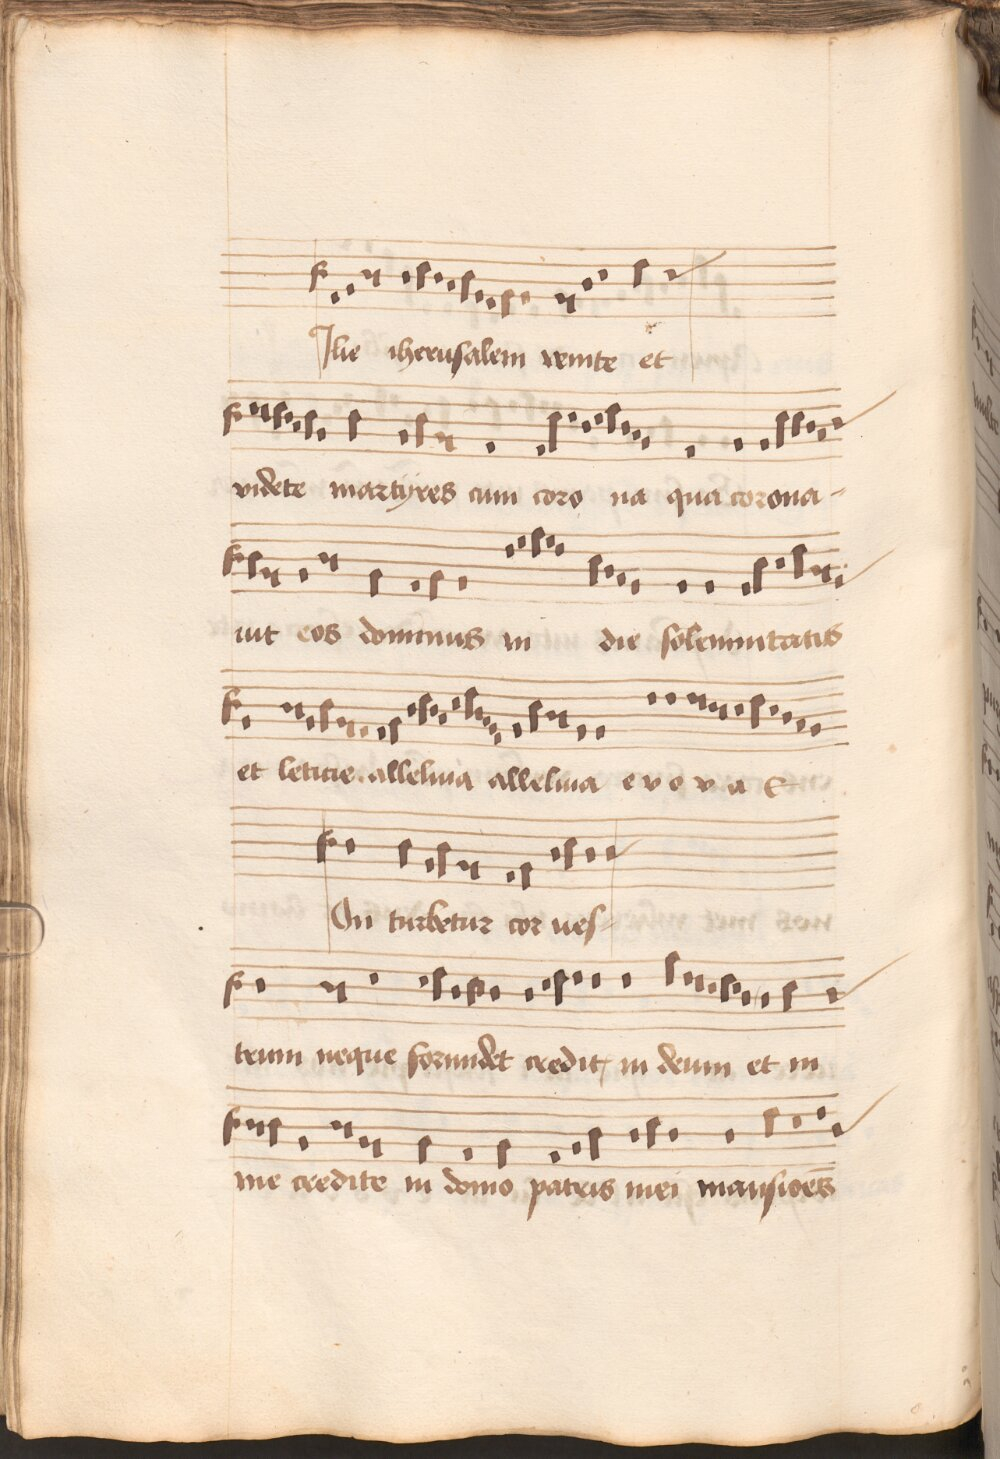 Ilie iherusalem venite et
videte martyres cum coro na qua corona-
uit eos dominus in die solemnitatis
et leticie alleluia alleluia e v o v a e
On turbetur cor ues-
trum neque formidet credit in deum et in
me credite in domo patris mei mansiões